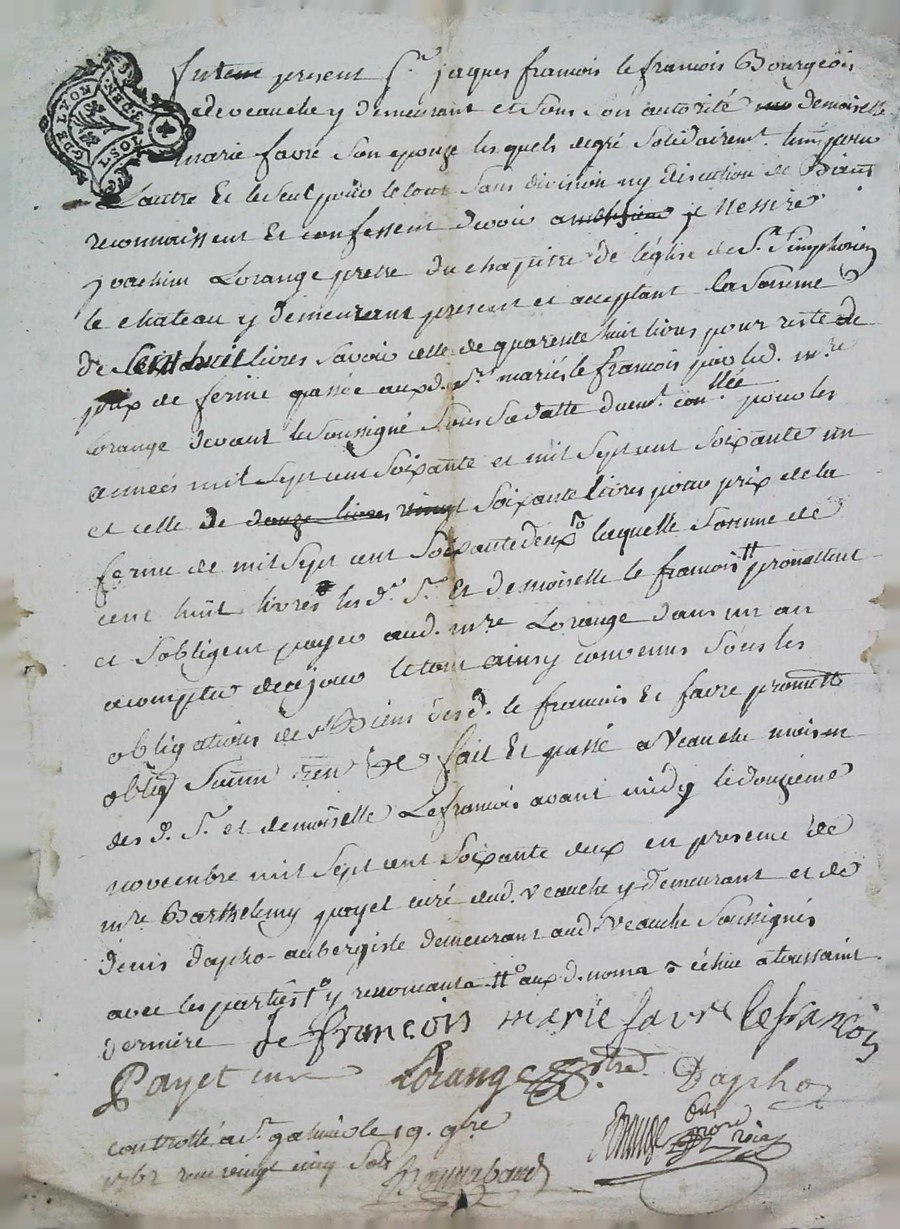 GDE LYON
furent present Sr. jaques francois le francois Bourgeois
de veauche y demeurant et sous son autorité demoiselle
marie favre son epouze lesquels degré solidairemt. lun pour
Lautre Et le seul pour le tout sans division ny discution de Biens
reconnaissent Et confessent devoir a Messire
joachim Lorange pretre du chapitre de léglise de St. Simphorien
le chateau y demeurant present et acceptant la somme
de livres savoir celle de quarente huit livres pour reste du
prix de ferme passée auxd. srs mariés le francois par led. mre
Lorange devant le soussigné sous sa datte duemt. conllée pour les
années mil sept cent soixante et mil sept cent soixante un
et celle de douze livres vingt soixante livres pour prix de la
ferme de mil sept cent soixante deux laquelle somme de
cent huit livres les d. Sr. Et demoiselle le francois # promettent
et sobligent payer aud. mre Lorange dans un an
a compter de ce jour le tout ainsy convenus sous les
obligations des Biens desd. le francois Et favre promett
oblig fait Et passé a Veauche maison
des d. Sr. et demoiselle Lefrancois avant midy le douzieme
novembre mil sept cent soixante deux en presence de
mre Barthelemy payet curé dud. veauche y demeurant et de
denis dapho aubergiste demeurant aud. Veauche Soussignés
avec les parties aux d. noms échue a toussaint
derniere le françois marie favre lefrançois
Payet curé Lorange ptre Dapho
controllé a St. galmier le 19. 9bre
1762 reçu vingt cinq sols Bonnabaud